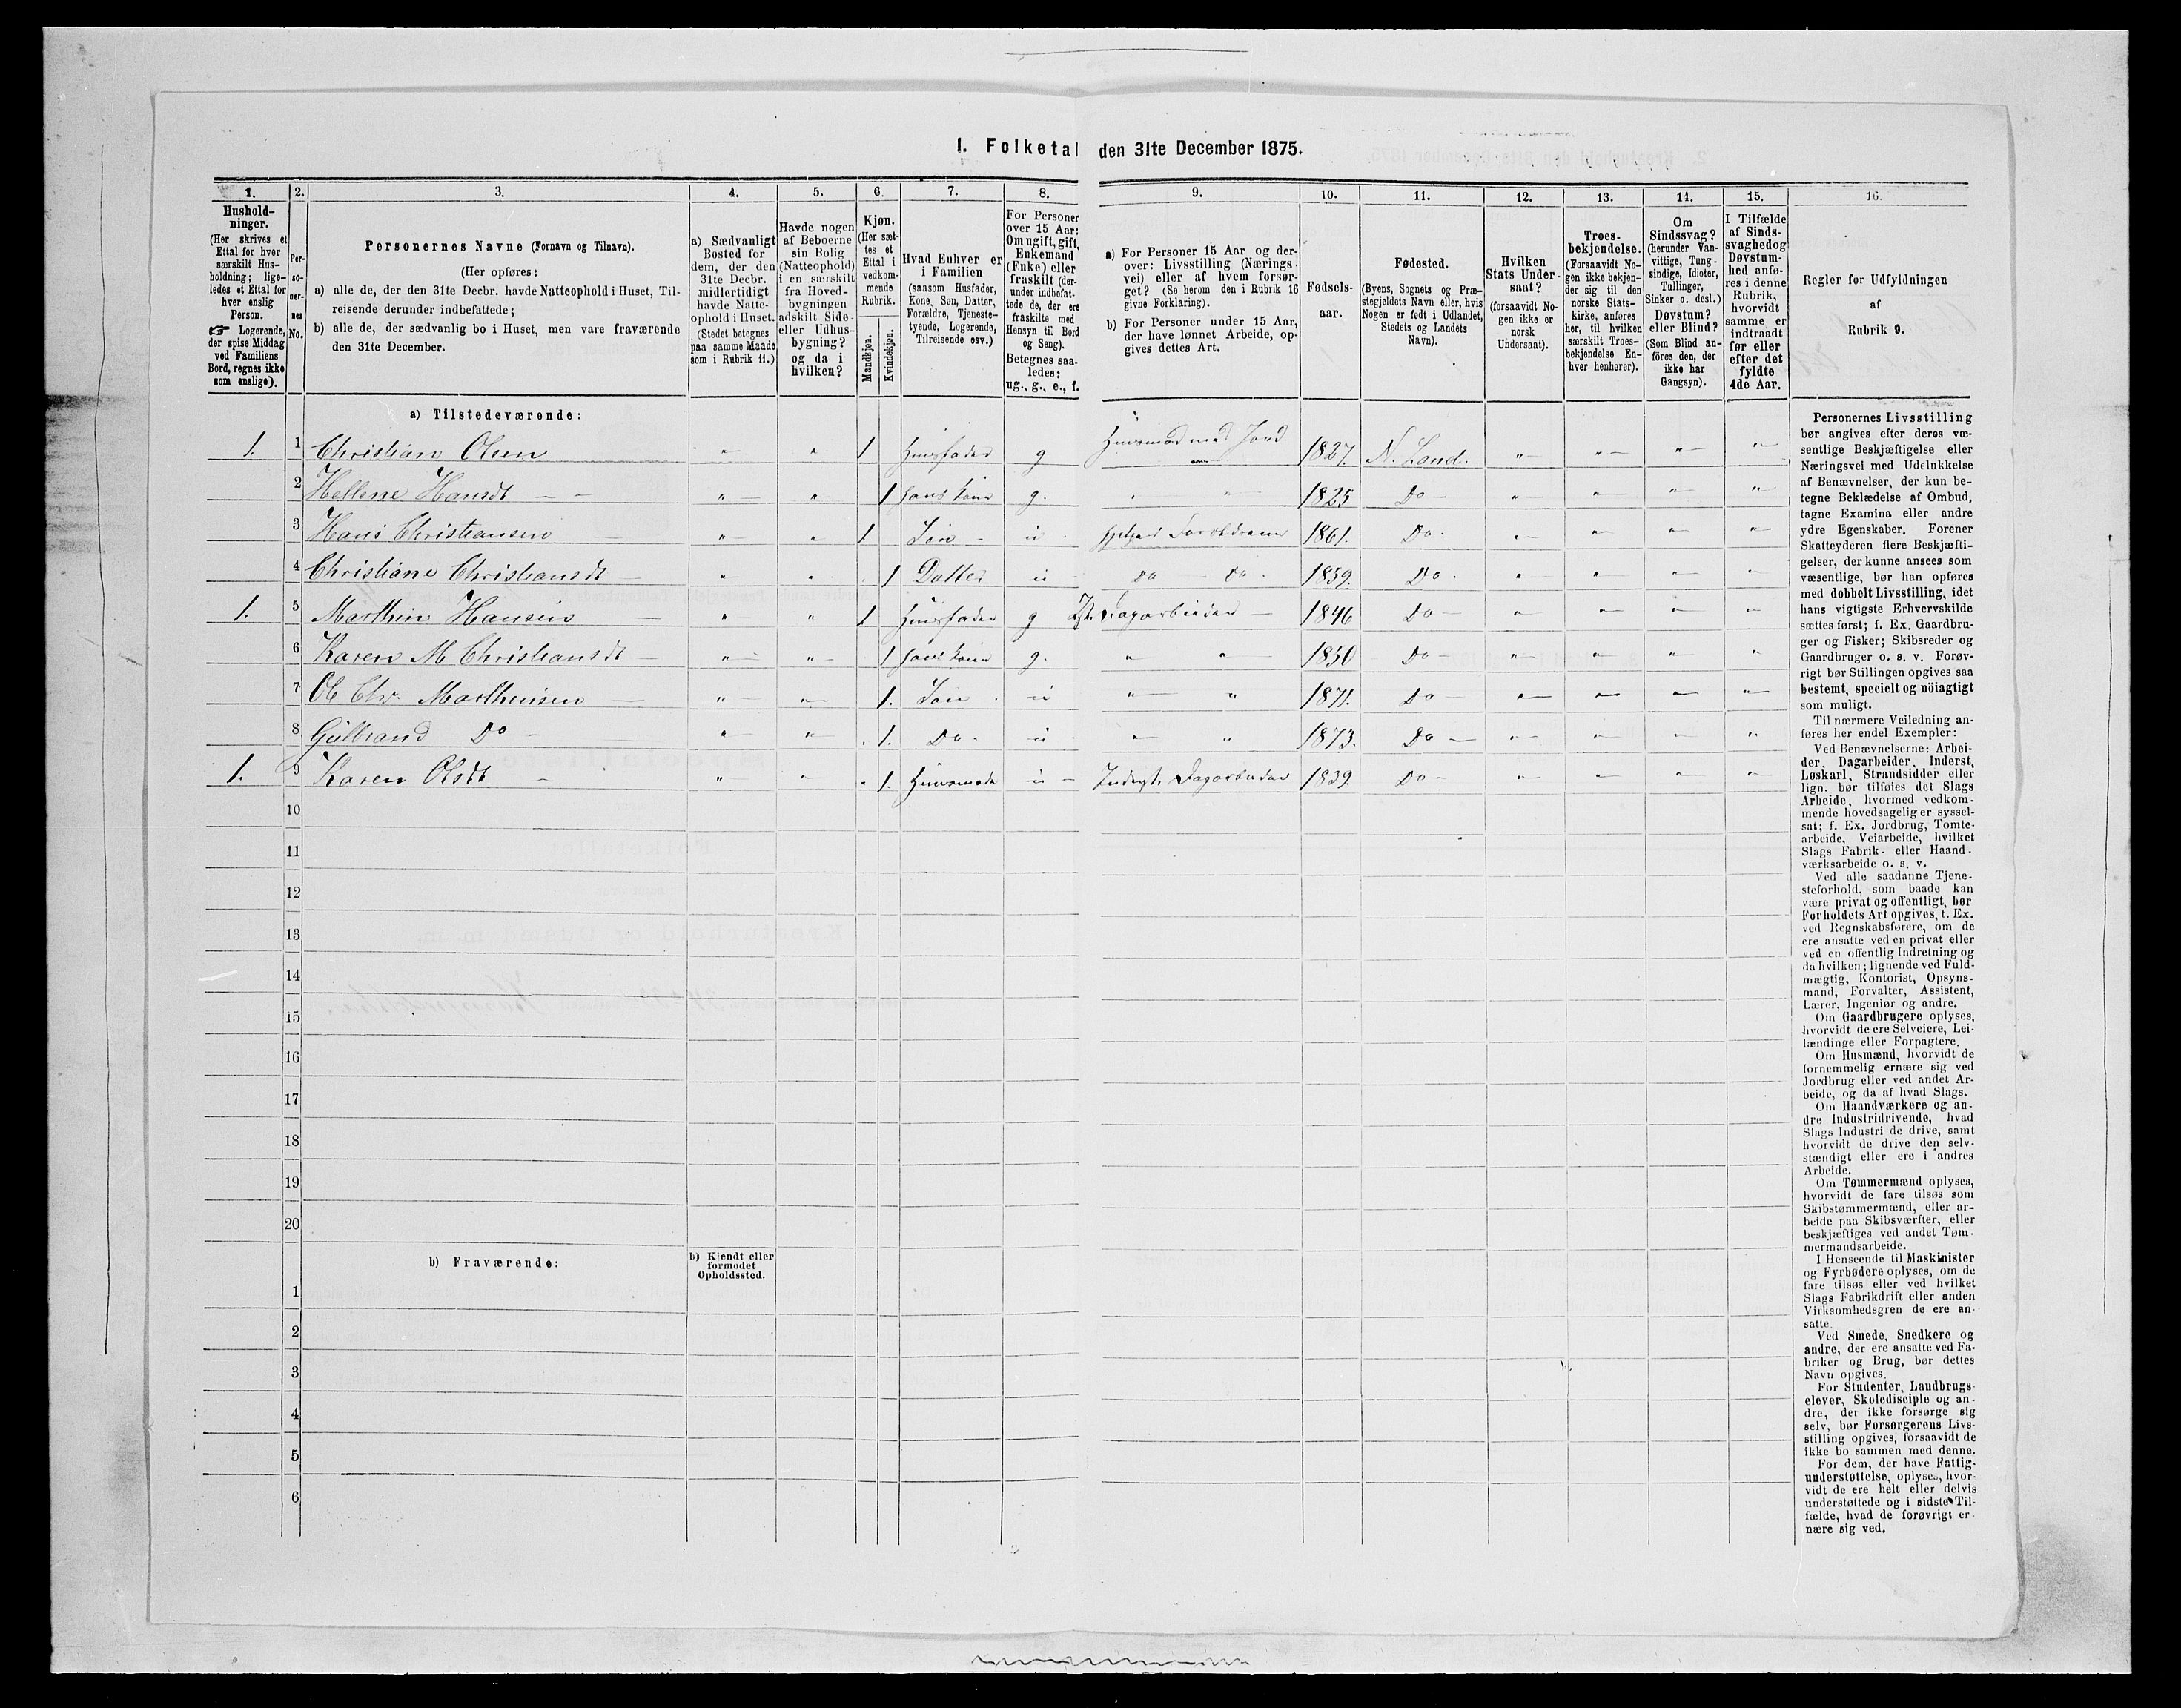 1. Folketal den 31te December 1875.
1.
2.
3.
4.
5.
6.
7.
8.
9.
10.
11.
12.
13.
14.
15.
16.
Hushold-
ninger.
(Her skrives et
Ettal for hver
særskilt Hus-
holdning; lige-
ledes et Ettal for
hver enslig
Person.
☞ Logerende,
der spise Middag
ved Familiens
Bord, regnes ikke
som enslige).
Per-
so-
ner-
nes
No.
Personernes Navne (Fornavn og Tilnavn).
(Her opføres:
a) alle de, der den 31te Decbr. havde Natteophold i Huset, Til-
reisende derunder indbefattede;
b) alle de, der sædvanlig bo i Huset, men vare fraværende
den 31te December.
a) Sædvanligt
Bosted for
dem, der den
31te Decbr.
midlertidigt
havde Natte-
ophold i Huset.
(Stedet betegnes
paa samme Maade
som i Rubrik 11.)
Havde nogen
af Beboerne
sin Bolig
(Natteophold)
i en særskilt
fra Hoved-
bygningen
adskilt Side-
eller Udhus-
bygning?
og da i
hvilken?
Kjøn.
(Her sæt-
tes et
Ettal i
vedkom-
mende
Rubrik.
Mandkjøn.
Kvindekjøn.
Hvad Enhver er
i Familien
(saasom Husfader,
Kone, Søn, Datter,
Forældre, Tjeneste-
tyende, Logerende,
Tilreisende osv.)
For Personer
over 15 Aar:
Om ugift, gift,
Enkemand
(Enke) eller
fraskilt (der-
under indbefat-
tede de, der ere
fraskilte med
Hensyn til Bord
og Seng).
Betegnes saa-
ledes:
ug., g., e., f.
a) For Personer 15 Aar og der-
over: Livsstilling (Nærings-
vei) eller af hvem forsør-
get? (Se herom den i Rubrik 16
givne Forklaring).
b) For Personer under 15 Aar,
der have lønnet Arbeide, op-
gives dettes Art.
Fødsels-
aar.
Fødested.
(Byens, Sognets og Præ-
stegjeldets Navn eller, hvis
Nogen er født i Udlandet,
Stedets og Landets
Navn).
Hvilken
Stats Under-
saat?
(forsaavidt No-
gen ikke er
norsk
Undersaat).
Troes-
bekjendelse.
(Forsaavidt No-
gen ikke bekjen-
der sig til den
norske Stats-
kirke, anføres
her, til hvilken
særskilt Troes-
bekjendelse En-
hver henhører).
Om
Sindssvag?
(herunder Van-
vittige, Tung-
sindige, Idioter,
Tullinger,
Sinker o. desl.)
Døvstum?
eller Blind?
(Som Blind an-
föres den, der
ikke har
Gangsyn).
I Tilfælde
af Sinds-
svaghed og
Døvstum-
hed anfø-
res i denne
Rubrik,
hvorvidt
samme er
indtraadt
før eller
efter det
fyldte
4de Aar.
Regler for Udfyldningen
af
Rubrik 9.
a) Tilstedeværende:
1. 1 Christian Olsen " " 1 Husfader g Huusmand med Jord 1827. N. Land. " " " "
2 Hellene Hansdt " " 1 hans kone g. " " 1825 Do " " " "
3 Hans Christiansen " " 1 Søn u hjelper Forældrene 1861. Do. " " " "
4 Christiane Christiansdt " " 1 Datter u Do Do 1859. Do. " " " "
1. 5 Marthin Hansen " " 1 Husfader g Dagarbeider 1846 Do " " " "
6 Karen M Christiansdt " " 1 hans kone g. " " 1850 Do " " " "
7 Ole Chr. Marthinsen " " 1. Søn u " " 1871. Do " " " "
8 Gulbrand Do " " 1. Do. u " " 1873. Do " " " "
1. 9 Karen Olsdt " " 1. Huusmoder u Inderst. Dagarbeider 1839. Do " " " "
10
11
12
13
14
15
16
17
18
19
20
b) Fraværende:
b) Kjendt eller
formodet
Opholdssted.
1
2
3
4
5
6
Personernes Livsstilling
bør angives efter deres væ-
sentlige Beskjæftigelse eller
Næringsvei med Udelukkelse
af Benævnelser, der kun be-
tegne Beklædelse af Ombud,
tagne Examina eller andre
ydre Egenskaber. Forener
Skatteyderen flere Beskjæfti-
gelser, der kunne ansees som
væsentlige, bør han opføres
med dobbelt Livsstilling, idet
hans vigtigste Erhvervskilde
sættes først; f. Ex. Gaardbru-
ger og Fisker; Skibsreder og
Gaardbruger o. s. v. Forøv-
rigt bør Stillingen opgives saa
bestemt, specielt og nöiagtigt
som muligt.
Til nærmere Veiledning an-
føres her endel Exempler:
Ved Benævnelserne: Arbei-
der, Dagarbeider, Inderst,
Løskarl, Strandsidder eller
lign. bør tilføies det Slags
Arbeide, hvormed vedkom-
mende hovedsagelig er syssel-
sat; f. Ex. Jordbrug, Tomte-
arbeide, Veiarbeide, hvilket
Slags Fabrik- eller Haand-
værksarbeide o. s. v.
Ved alle saadanne Tjene-
steforhold, som baade kan
være privat og offentligt, bør
Forholdets Art opgives, t. Ex.
ved Regnskabsførere, om de
ere ansatte ved en privat eller
ved en offentlig Indretning og
da hvilken; lignende ved Fuld-
mægtig, Kontorist, Opsyns-
mand, Forvalter, Assistent,
Lærer, Ingeniør og andre.
Om Gaardbrugere oplyses,
hvorvidt de ere Selveiere, Lei-
lændinge eller Forpagtere.
Om Husmænd, hvorvidt de
fornemmelig ernære sig ved
Jordbrug eller ved andet Ar-
beide, og da af hvad Slags.
Om Haandværkere og an-
dre Industridrivende, hvad
Slags Industri de drive, samt
hvorvidt de drive den selv-
stændigt eller ere i andres
Arbeide.
Om Tømmermænd oplyses,
hvorvidt de fare tilsøs som
Skibstømmermænd, eller ar-
beide paa Skibsværfter, eller
beskjæftiges ved andet Tøm-
mermandsarbeide.
I Henseende til Maskinister
og Fyrbødere oplyses, om de
fare tilsøs eller ved hvilket
Slags Fabrikdrift eller anden
Virksomhedsgren de ere an-
satte.
Ved Smede, Snedkere og
andre, der ere ansatte ved Fa-
briker og Brug, bør dettes
Navn opgives.
For Studenter, Landbrugs-
elever, Skoledisciple og an-
dre, der ikke forsørge sig
selv, bør Forsørgerens Livs-
stilling opgives, forsaavidt de
ikke bo sammen med denne.
For dem, der have Fattig-
understøttelse, oplyses, hvor-
vidt de ere helt eller delvis
understøttede og i sidste Til-
fælde, hvad de forøvrigt er-
nære sig ved.